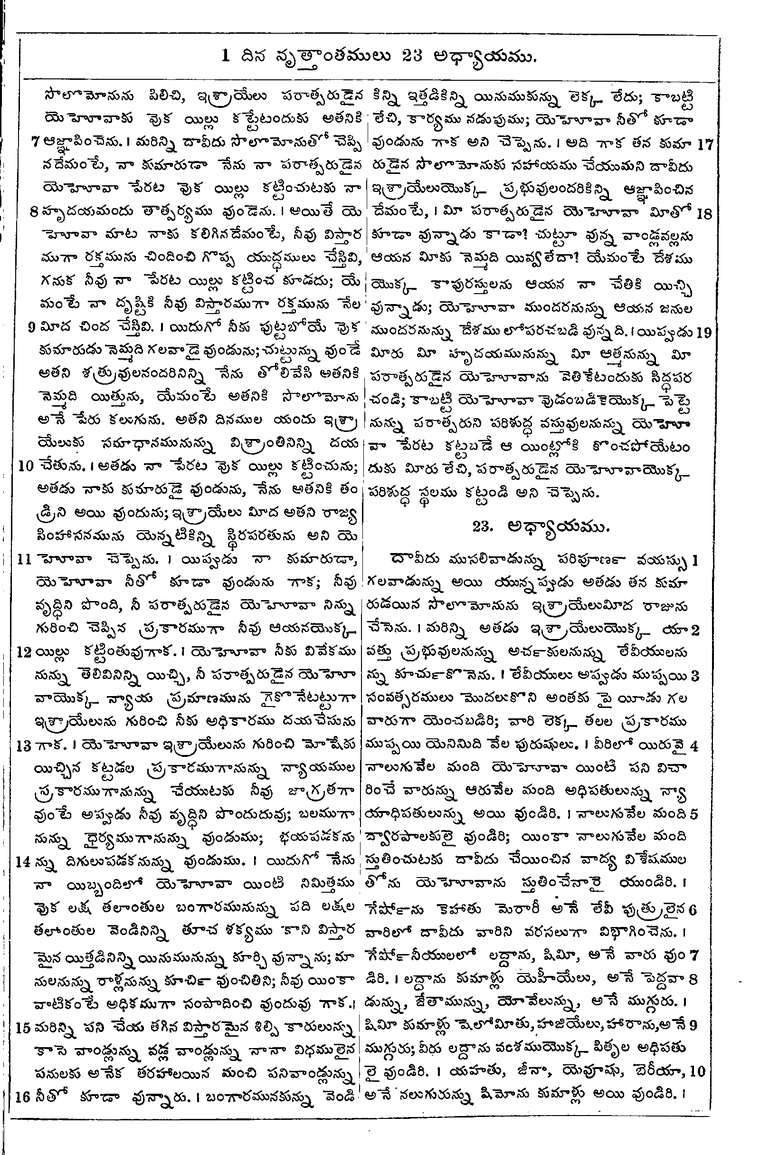 1 దిన వృత్తాంతములు 23 అధ్యాయము.
సొలొమోనును పిలిచి, ఇశ్రాయేలు పరాత్పరుడైన
యెహోవాకు వొక యిల్లు కట్టేటందుకు అతనికి
7 ఆజ్ఞాపించెను. । మరిన్ని దావీదు సొలొమోనుతో చెప్పి
నదేమంటే, నా కుమారుడా నేను నా పరాత్పరుడైన
యెహోవా పేరట వొక యిల్లు కట్టించుటకు నా
8 హృదయమందు తాత్పర్యము వుండెను. । అయితే యె
హోవా మాట నాకు కలిగినదేమంటే, నీవు విస్తార
ముగా రక్తమును చిందించి గొప్ప యుద్ధములు చేస్తివి,
గనుక నీవు నా పేరట యిల్లు కట్టించ కూడదు; యే
మంటే నా దృష్టికి నీవు విస్తారముగా రక్తమును నేల
9 మీద చింద చేస్తివి. । యిదుగో నీకు పుట్టబోయే వొక
కుమారుడు నెమ్మది గలవాడై వుండును; చుట్టున్ను వుండే
అతని శత్రువులనందరినిన్ని నేను తోలివేసి అతనికి
నెమ్మది యిత్తును, యేమంటే అతనికి సొలొమోను
అనే పేరు కలుగును. అతని దినముల యందు ఇశ్రా
యేలుకు సమాధానమునున్ను విశ్రాంతినిన్ని దయ
10 చేతును. । అతడు నా పేరట వొక యిల్లు కట్టించును;
అతడు నాకు కుమారుడై వుండును, నేను అతనికి తం
డ్రిని అయి వుందును; ఇశ్రాయేలు మీద అతని రాజ్య
సింహాసనమును యెన్నటికిన్ని స్థిరపరతును అని యె
11 హోవా చెప్పెను. । యిప్పుడు నా కుమారుడా,
యెహోవా నీతో కూడా వుండును గాక; నీవు
వృద్ధిని పొంది, నీ పరాత్పరుడైన యెహోవా నిన్ను
గురించి చెప్పిన ప్రకారముగా నీవు ఆయనయొక్క
12 యిల్లు కట్టింతువుగాక. । యెహోవా నీకు వివేకము
నున్ను తెలివినిన్ని యిచ్చి, నీ పరాత్పరుడైన యెహో
వాయొక్క న్యాయ ప్రమాణమును గైకొనేటట్టుగా
ఇశ్రాయేలును గురించి నీకు అధికారము దయచేసును
13 గాక. । యెహోవా ఇశ్రాయేలును గురించి మోషేకు
యిచ్చిన కట్టడల ప్రకారముగానున్ను న్యాయముల
ప్రకారముగానున్ను చేయుటకు నీవు జాగ్రతగా
వుంటే అప్పుడు నీవు వృద్ధిని పొందుదువు; బలముగా
నున్ను ధైర్యముగానున్ను వుండుము; భయపడకను
14 న్ను దిగులుపడకనున్ను వుండుము. । యిదుగో నేను
నా యిబ్బందిలో యెహోవా యింటి నిమిత్తము
వొక లక్ష తలాంతుల బంగారమునున్ను పది లక్షల
తలాంతుల వెండినిన్ని తూచ శక్యము కాని విస్తార
మైన యిత్తడినిన్ని యినుమునున్ను కూర్చి వున్నాను; మా
నులనున్ను రాళ్లనున్ను కూర్చి వుంచితిని; నీవు యింకా
వాటికంటే అధికముగా సంపాదించి వుందువు గాక. ।
15 మరిన్ని పని చేయ తగిన విస్తారమైన శిల్పి కారులున్ను
కాసె వాండ్లున్ను వడ్ల వాండ్లున్ను నానా విధములైన
పనులకు అనేక తరహాలయిన మంచి పనివాండ్లున్ను
16 నీతో కూడా వున్నారు. । బంగారమునకున్ను వెండి
కిన్ని ఇత్తడికిన్ని యినుముకున్ను లెక్క లేదు; కాబట్టి
లేచి, కార్యము నడుపుము; యెహోవా నీతో కూడా
వుండును గాక అని చెప్పెను. । అది గాక తన కుమా 17
రుడైన సొలొమోనుకు సహాయము చేయుమని దావీదు
ఇశ్రాయేలుయొక్క ప్రభువులందరికిన్ని ఆజ్ఞాపించిన
దేమంటే, । మీ పరాత్పరుడైన యెహోవా మీతో 18
కూడా వున్నాడు కాడా? చుట్టూ వున్న వాండ్లవల్లను
ఆయన మీకు నెమ్మది యివ్వలేదా? యేమంటే దేశము
యొక్క కాపురస్తులను ఆయన నా చేతికి యిచ్చి
వున్నాడు; యెహోవా ముందరనున్ను ఆయన జనుల
ముందరనున్ను దేశము లోపరచబడి వున్నది. । యిప్పుడు 19
మీరు మీ హృదయమునున్ను మీ ఆత్మనున్ను మీ
పరాత్పరుడైన యెహోవాను వెతికేటందుకు సిద్ధపర
చండి; కాబట్టి యెహోవా వుడంబడికెయొక్క పెట్టె
నున్ను పరాత్పరుని పరిశుద్ధ వస్తువులనున్ను యెహో
వా పేరట కట్టబడే ఆ యింట్లోకి కొంచపోయేటం
దుకు మీరు లేచి, పరాత్పరుడైన యెహోవాయొక్క
పరిశుద్ధ స్థలము కట్టండి అని చెప్పెను.
23. అధ్యాయము.
దావీదు ముసలివాడున్ను పరిపూర్ణ వయస్సు 1
గలవాడున్ను అయి యున్నప్పుడు అతడు తన కుమా
రుడయిన సొలొమోనును ఇశ్రాయేలుమీద రాజును
చేసెను. । మరిన్ని అతడు ఇశ్రాయేలుయొక్క యా 2
వత్తు ప్రభువులనున్ను అర్చకులనున్ను లేవీయులను
న్ను కూర్చుకొనెను. । లేవీయులు అప్పుడు ముప్పయి 3
సంవత్సరములు మొదలుకొని అంతకు పై యీడు గల
వారుగా యెంచబడిరి; వారి లెక్క తలల ప్రకారము
ముప్పయి యెనిమిది వేల పురుషులు. । వీరిలో యిరువై 4
నాలుగువేల మంది యెహోవా యింటి పని విచా
రించే వారున్ను ఆరువేల మంది అధిపతులున్ను న్యా
యాధిపతులున్ను అయి వుండిరి. । నాలుగువేల మంది 5
ద్వారపాలకులై వుండిరి; యింకా నాలుగువేల మంది
స్తుతించుటకు దావీదు చేయించిన వాద్య విశేషముల
తోను యెహోవాను స్తుతించేవారై యుండిరి. ।
గేర్షోను కెహాతు మెరారీ అనే లేవీ పుత్రులైన 6
వారిలో దావీదు వారిని వరసలుగా విభాగించెను. ।
గేర్షోనీయులలో లద్దాను, షిమీ, అనే వారు వుం 7
డిరి. । లద్దాను కుమాళ్లు యెహీయేలు, అనే పెద్దవా 8
డున్ను, జేతామున్ను, యోవేలున్ను, అనే ముగ్గురు. ।
షిమీ కుమాళ్లు షెలోమీతు, హజియేలు, హారాను, అనే 9
ముగ్గురు; వీరు లద్దాను వంశముయొక్క పితృల అధిపతు
లై వుండిరి. । యహతు, జీనా, యెవూషు, బెరీయా, 10
అనే నలుగురున్ను షిమోను కుమాళ్లు అయి వుండిరి. ।